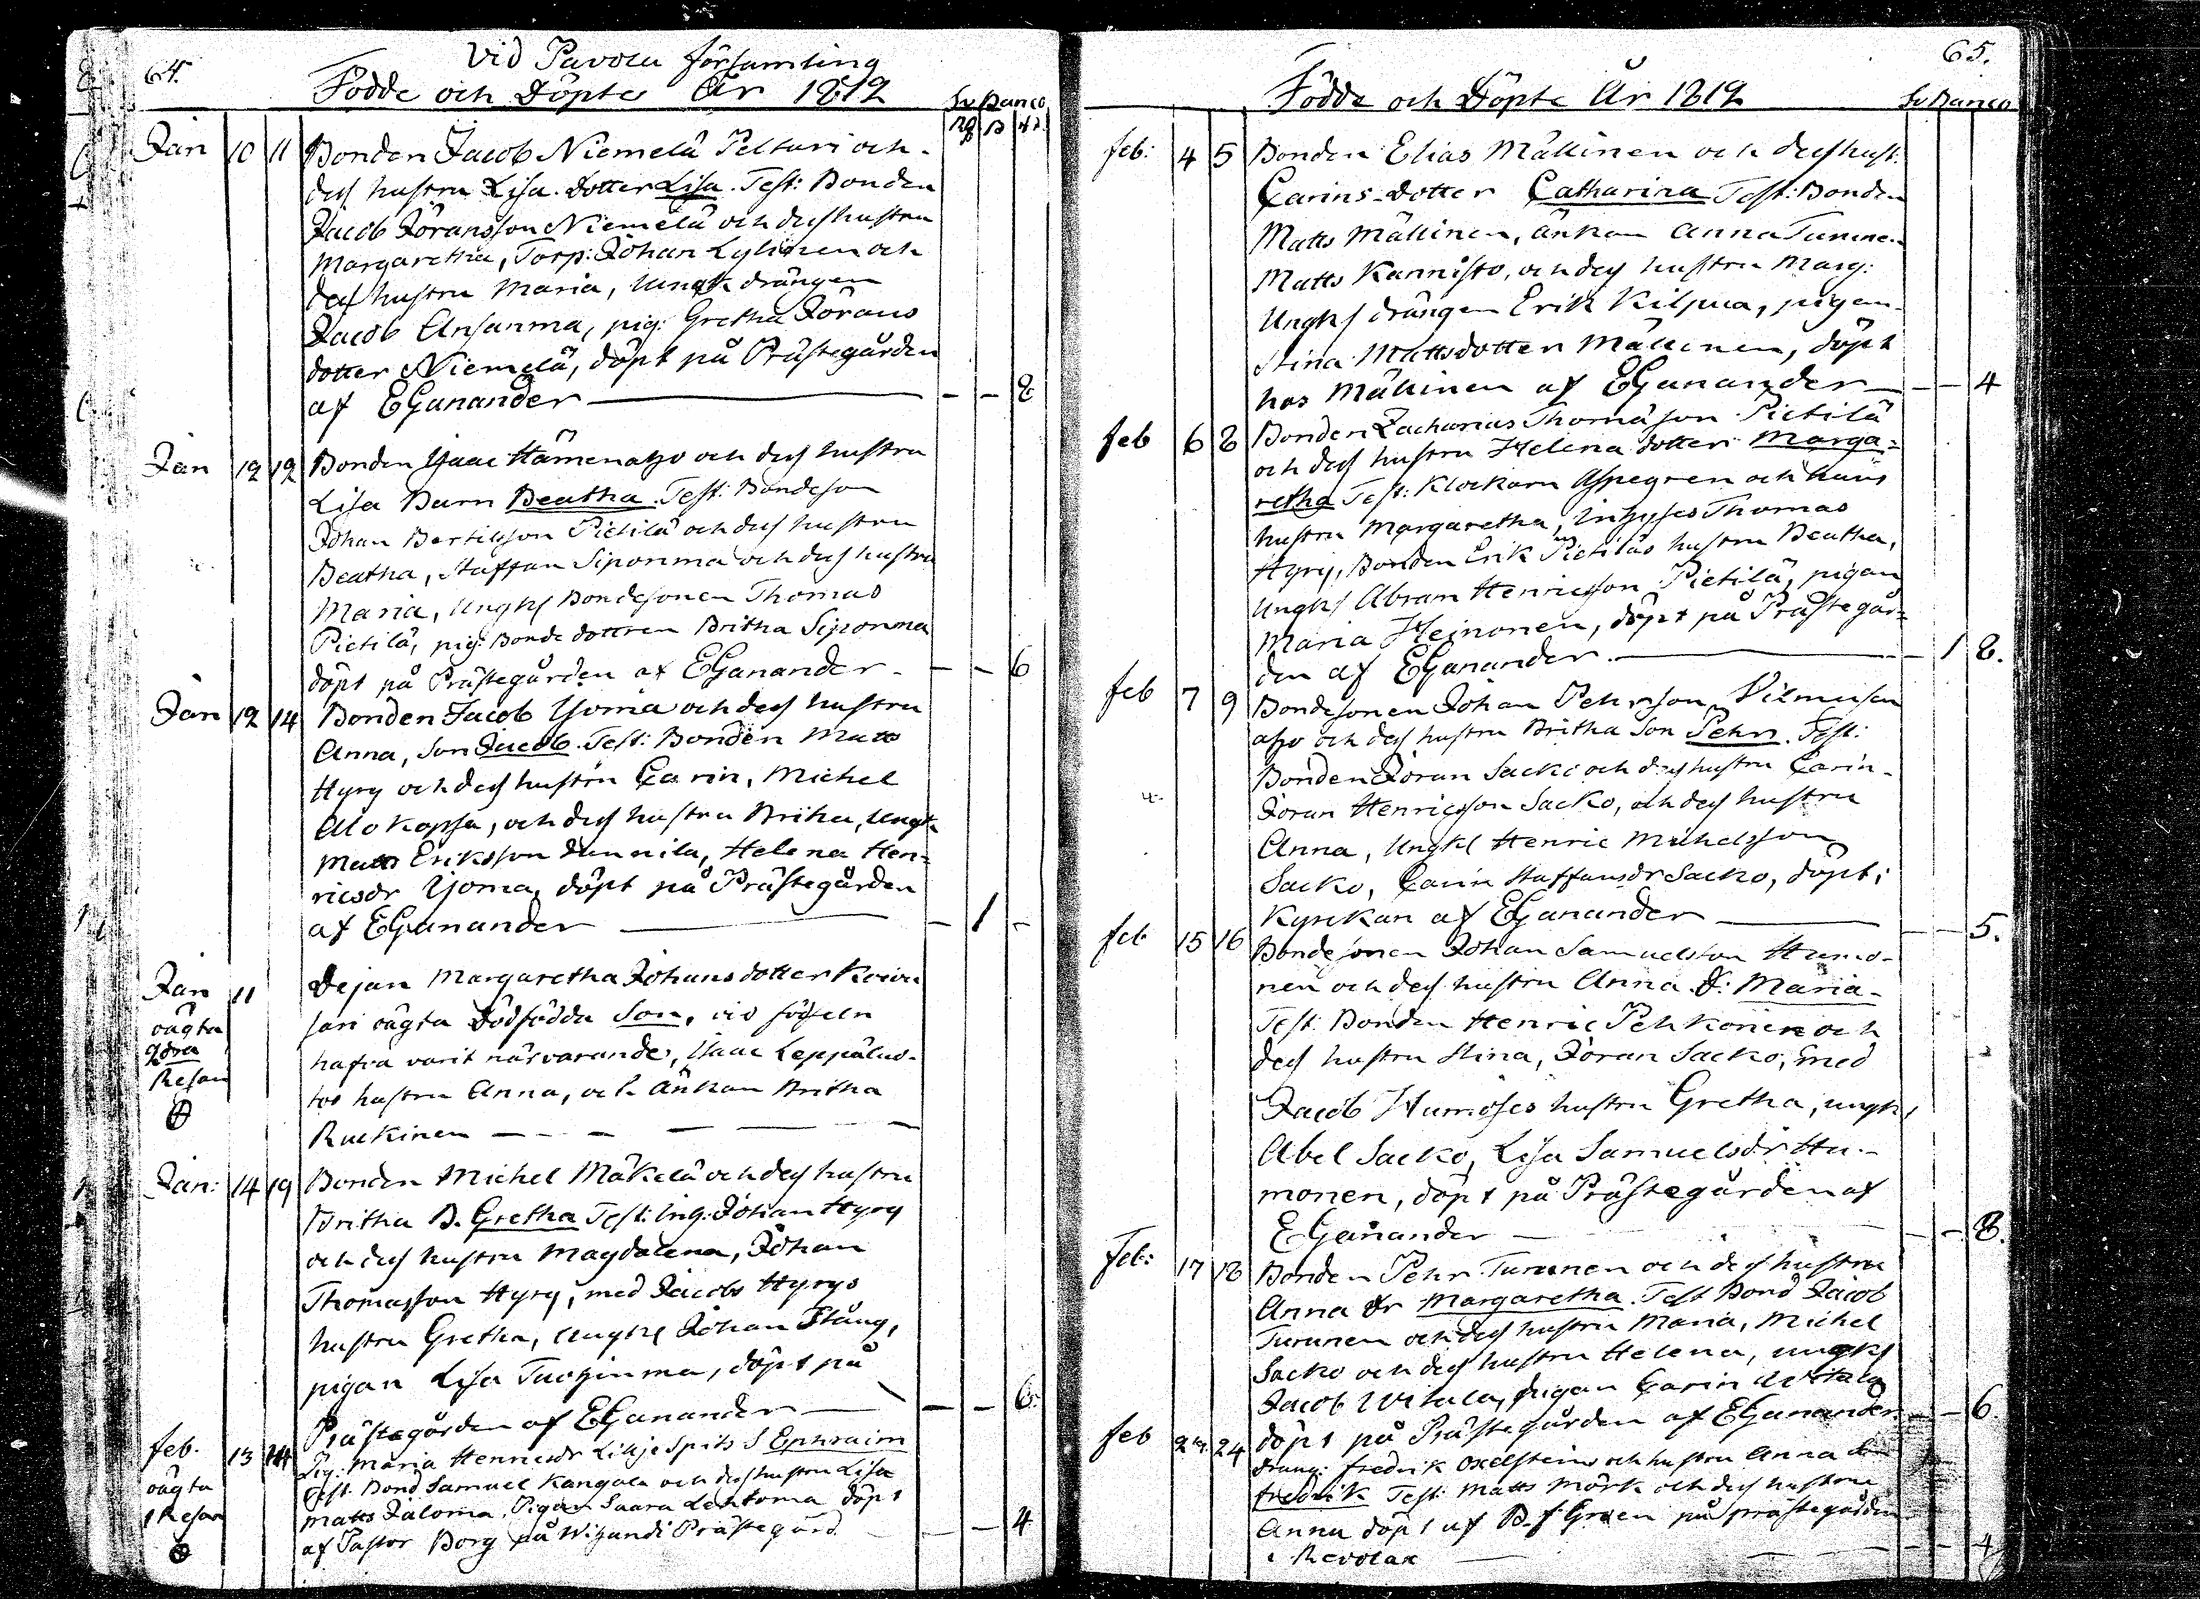 64.
Vid Pavola församling
Födde och Döpte År 1812
Sv Banco
Rd ß rs
Jan 10 11 Bonden Jacob Niemelä Pelturi och
dess hustru Lisa. dotter Lisa. Test: Bonden
Jacob Jöransson Niemelä och dess hustru
Margaretha, Torp: Johan Lylinen och
dess hustru Maria, ungk drängen
Jacob Ansanma, pig: Gretha Jörans
dotter Niemelä, döpt på Prästegården
af EGanander — — — 8
Jan 12 12 Bonden Isaac Hämenaho och dess hustru
Lisa Barn Beatha. Test: Bondeson
Johan Bertilsson Pietilä och dess hustru
Beatha, Staffan Siponma och dess hustru
Maria, ungks Bondesonen Thomas
Pietilä, pig: Bonde dottren Britha Siponma
döpt på Prästegården af EGanander — — 6
Jan 12 14 Bonden Jacob Isoma och dess hustru
Anna, Son Jacob. Test: Bonden Matts
Hyry och dess hustru Carin, Michel
Alokopsa, och dess hustru Britha, ungk
Matts Eriksson dunnila, Helena Hen-
ricsdr Isoma, döpt på Prästegården
af EGanander — — 1 -
Jan 11
oägta
2dra
Resan
Dejan Margaretha Johansdotter Koivu
sari oägta Dödfödda Son, vid födseln
hafva varit närvarande, Isaac Leppäluo-
tos hustru Anna, och änkan Britha
Ruckinen — — — — —
Jan: 14 19 Bonden Michel Mäkelä och dess hustru
Britha B. Gretha Test: Inh: Johan Hyry
och dess hustru Magdalena, Johan
Thomasson Hyry, med Jacobs Hyrys
hustru Gretha, ungks Johan Stång,
pigan Lisa Tuohinma, döpt på
Prästegården af EGanander — — — 6
feb. 13 14
oägta
1 Resan
Pig: Maria Henricsdr Liljespits S Ephraim
Test. Bond Samuel Kangola och dess hustru Lisa
Matts Jaloma, Pigan Saara Lehtoma döpt
af Pastor Borg på Wihandi Prästegård — — 4
65.
Födde och Döpte År 1812
Sv Banco
feb: 4 5 Bonden Elias Mäkinen och dess hust:
Carins-dotter Catharina Test: Bonden
Matts Mäkinen, änkan Anna Turune
Matts Kannisto, och dess hustru Marg:
Ungks drängen Erik Kilpua, pigan
Stina Mattsdotter Mäkinen, döpt
hos Mäkinen af EGanander — — 4
feb 6 8 Bonden Zacharias Thomasson Pietilä
och dess hustru Helena dotter Marga-
retha Test: Klockarn Aspegren och hans
hustru Margaretha, Inhyses Thomas
Hyry, Bonden Erik Pietiläs hustru Beatha,
Ungks Abram Henricsson Pietilä, pigan
Maria Heinonen, döpt på Prästegår-
den af EGanander. — — 1 8.
feb 7 9 Bondesonen Johan Pehrsson Vilmusen
aho och dess hustru Britha Son Pehr. Test:
Bonden Jöran Sacko och dess hustru Carin-
Jöran Henricsson Sacko, och dess hustru
Anna, ungks Henric Michelsson
Sacko, Carin Staffansdr Sacko, döpt i
Kyrckan af EGanander — — — 5.
feb 15 16 Bondesonen Johan Samuelsson Humo-
nen och dess hustru Anna D: Maria-
Test: Bonden Henric Pehkonen och
dess hustru Stina, Jöran Sacko, med
Jacob Humoses hustru Gretha, ungks
Abel Sacko, Lisa Samuelsdr Hu-
monen, döpt på Prästegården af
EGanander — — — 8.
Feb: 17 18 Bonden Pehr Turunen och dess hustru
Anna dr Margaretha. Test Bond Jacob
Turunen och dess hustru Maria, Michel
Sacko och dess hustru Helena, ungks
Jacob Uitala, pigan Carin Uitala
döpt på Prästegården af EGanander — — 6
feb 24 Dräng: Fredrik Oxelstein och hustru Anna Son
Fredrik Test: Matts Mörk och dess hustru
Anna döpt af B. f Groen på prästegården
i Revolax — — — 4